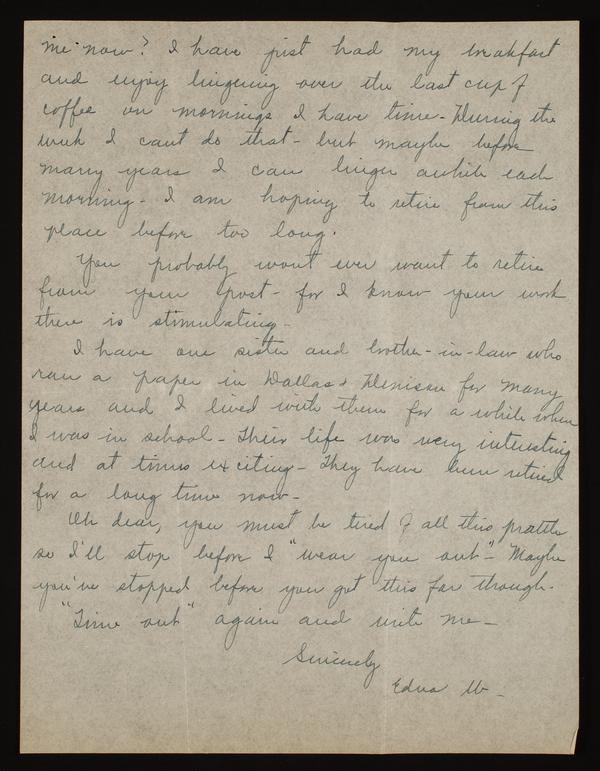 me now? I have just had my breakfast
and enjoy lingering over the last cup of
coffee on mornings I have time - During the
week I cant do that - but maybe before
many years I can linger awhile each
morning - I am hoping to retire from this
place before too long.
You probably wont ever want to retire
from your post - for I know your work
there is stimulating -
I have one sister and brother-in-law who
ran a paper in Dallas & Denison for many
years and I lived with them for a while when
I was in school - Their life was very interesting
and at times exciting - They have been retired
for a long time now -
Oh dear, you must be tired of all this prattle
so I'll stop before I "wear you out" - Maybe
you've stopped before you got this far though -
"Time out" again and write me -
Sincerely
Edna W -